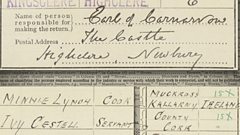 KINGSCLERE HIGHCLERE 6
Name of person responsible for making the return.
Earl of Carnarvon.
Postal Address
The Castle
Highclere Newbury
MINNIE LYNCH COOK MUCKROSS
KALLARNEY IRELAND
IVY CESTELL SERVANT COUNTY
CORK